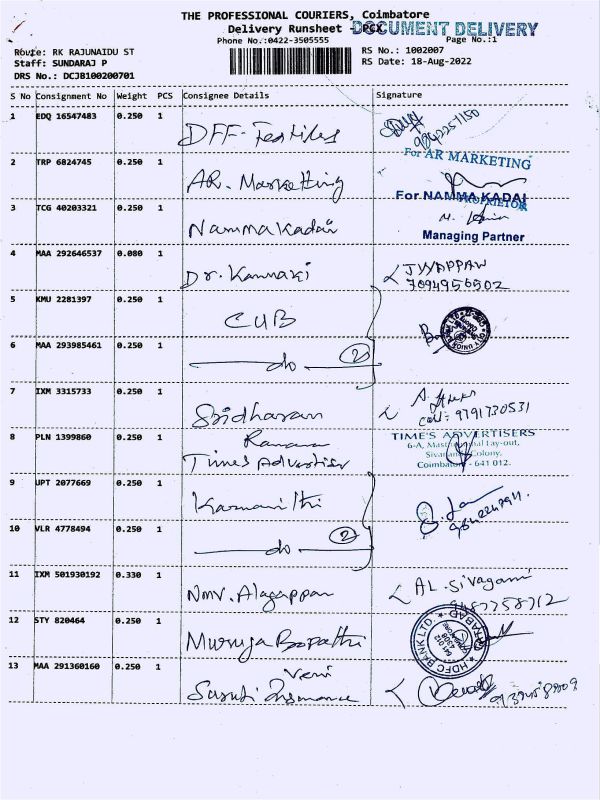 THE PROFESSIONAL COURIERS, Coimbatore
Delivery Runsheet - PCX
DOCUMENT DELIVERY
Phone No.:0422-3505555
Page No.:1
Route: RK RAJUNAIDU ST
RS No.: 1002007
Staff: SUNDARAJ P
RS Date: 18-Aug-2022
DRS No.: DCJB100200701
S No Consignment No Weight PCS Consignee Details Signature
1 EDQ 16547483 0.250 1 DFF-Textiles
2 TRP 6824745 0.250 1 AR. Marketting For AR MARKETING
3 TCG 40203321 0.250 1 Namma Kadai For NAMMA KADAI
PROPRIETOR
Managing Partner
4 MAA 292646537 0.080 1 Dr. Kannaki
5 KMU 2281397 0.250 1 CUB
6 MAA 293985461 0.250 1 do 2
7 IXM 3315733 0.250 1 Sridharan Cell: 9791730531
8 PLN 1399860 0.250 1 Times Advertiser TIME'S ADVERTISERS
6-A, Lay-out,
Colony,
Coimbatore - 641 012.
9 UPT 2077669 0.250 1
10 VLR 4778494 0.250 1 do 2
11 IXM 501930192 0.330 1 Nmv. Alagappan AL. Sivagami
12 STY 820464 0.250 1 HDFC BANK LTD.
13 MAA 291360160 0.250 1